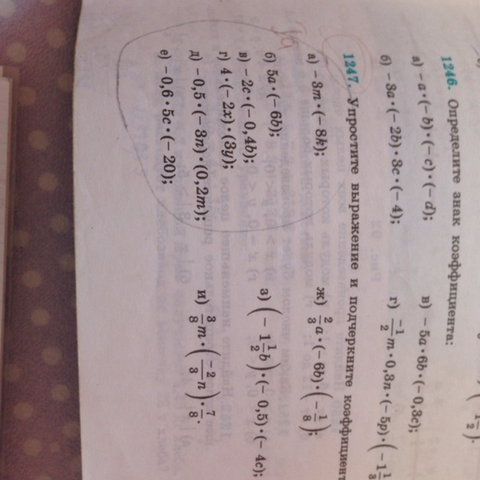 1246. Определите знак коэффициента:
а) −a·(−b)·(−c)·(−d);
в) −5a·6b·(−0,3c);
б) −3a·(−2b)·3c·(−4);
г) −1/2 m·0,3n·(−5p)·(−1
1247. Упростите выражение и подчеркните коэффициент
а) −3m·(−8k);
ж) 2/3 a·(−6b)·(−1/8);
б) 5a·(−6b);
в) −2c·(−0,4b);
з) (−1 1/2 b)·(−0,5)·(−4c);
г) 4·(−2x)·(3y);
д) −0,5·(−3n)·(0,2m);
и) 3/8 m·(−2/3 n)·7/8.
е) −0,6·5c·(−20);